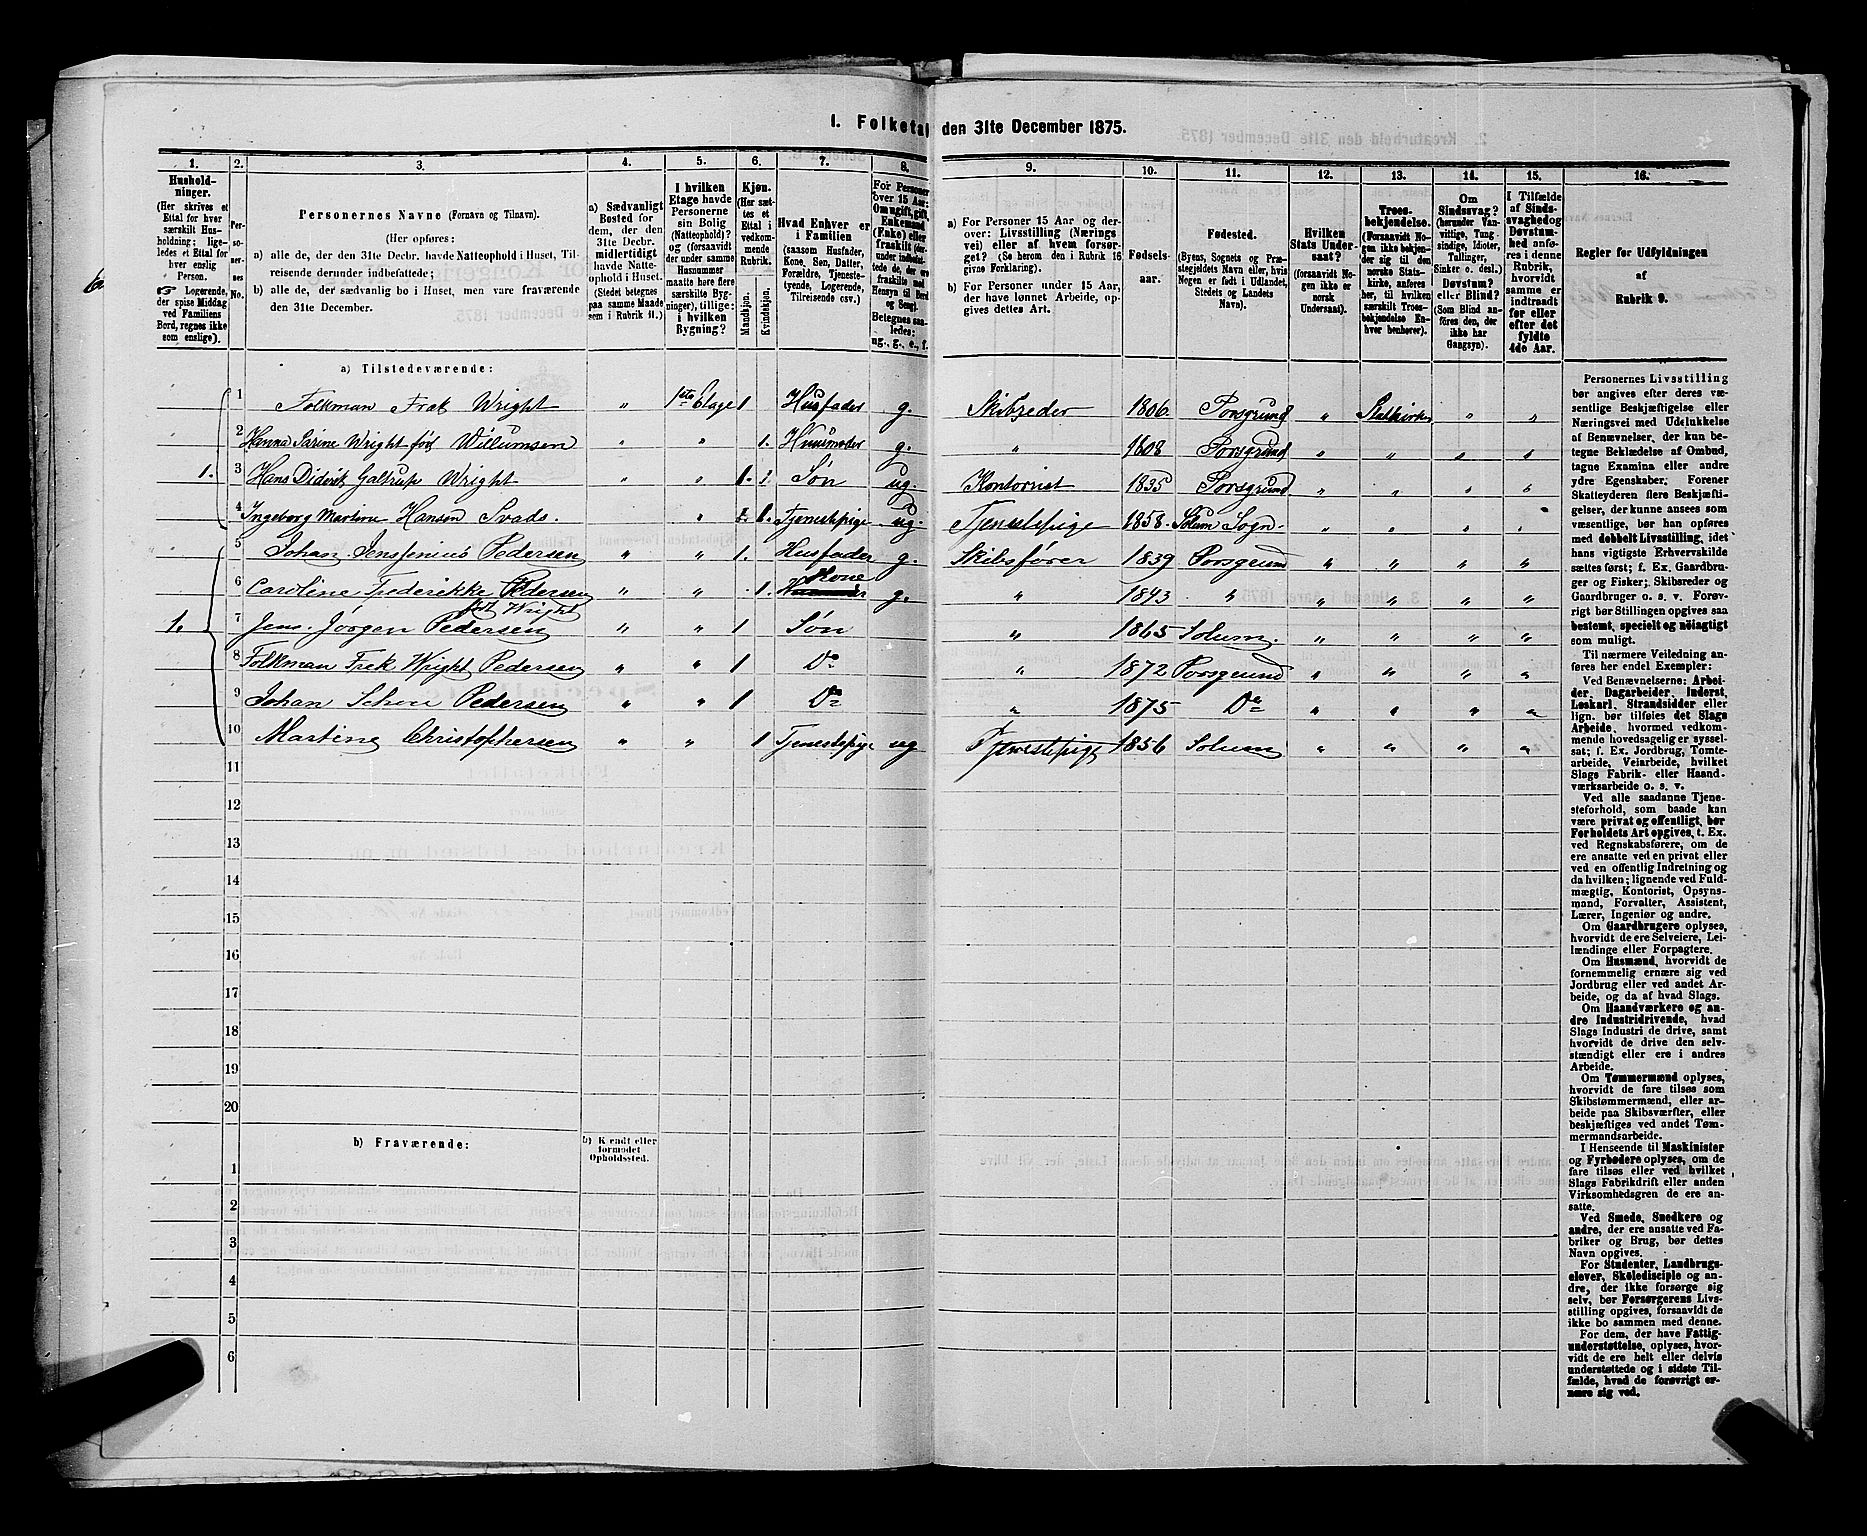 1. Folketal den 31te December 1875.
1. 2. 3. 4. 5. 6. 7. 8. 9. 10. 11. 12. 13. 14. 15. 16.
Husholdninger.
(Her skrives et Ettal for hver særskilt Husholdning; ligeledes et Ettal for hver enslig Person.
☞ Logerende, der spise Middag ved Familiens Bord, regnes ikke som enslige).
Personernes No.
Personernes Navne (Fornavn og Tilnavn).
(Her opføres:
a) alle de, der den 31te Decbr. havde Natteophold i Huset, Tilreisende derunder indbefattede;
b) alle de, der sædvanlig bo i Huset, men vare fraværende den 31te December.
a) Sædvanligt Bosted for dem, der den 31te Decbr. midlertidigt havde Natteophold i Huset. (Stedet betegnes paa samme Maade som i Rubrik 11.)
I hvilken Etage havde Personerne sin Bolig (Natteophold)? og (forsaavidt der under samme Husnummer maatte høre flere særskilte Bygninger), tillige: i hvilken Bygning?
Kjøn. (Her sættes et Ettal i vedkommende Rubrik.
Mandkjøn.
Kvindekjøn.
Hvad Enhver er i Familien
(saasom Husfader, Kone, Søn, Datter, Forældre, Tjenestetyende, Logerende, Tilreisende osv.)
For Personer over 15 Aar: Om ugift, gift, Enkemand (Enke) eller fraskilt
Betegnes saaledes: ug., g., e., f.
a) For Personer 15 Aar og derover: Livsstilling (Næringsvei) eller af hvem forsørget? (Se herom den i Rubrik 16 givne Forklaring).
b) For Personer under 15 Aar, der have lønnet Arbeide, opgives dettes Art.
Fødselsaar.
Fødested.
(Byens, Sognets og Præstegjeldets Navn eller, hvis Nogen er født i Udlandet, Stedets og Landets Navn).
Hvilken Stats Undersaat?
(forsaavidt Nogen ikke er norsk Undersaat).
Troesbekjendelse.
(Forsaavidt Nogen ikke bekjender sig til den norske Statskirke, anføres her, til hvilken særskilt Troesbekjendelse Enhver henhører).
Om Sindssvag? (herunder Vanvittige, Tungsindige, Idioter, Tullinger, Sinker o. desl.) Døvstum? eller Blind? (Som Blind anføres den, der ikke har Gangsyn).
I Tilfælde af Sindssvaghed og Døvstumhed anføres i denne Rubrik, hvorvidt samme er indtraadt før eller efter det fyldte 4de Aar.
Regler for Udfyldningen af Rubrik 9.
a) Tilstedeværende:
1 Folkman Frek Wright " 1ste Etage 1 Husfader g. Skibsreder 1806. Porsgrund " Statkirken " "
2 Hanna Sarine Wright fød Willumsen " " 1. Husmoder g. " 1808 Porsgrund " " " "
1. 3 Hans Diderik Galtrup Wright " " 1. Søn ug. Kontorist 1835 Porsgrund " " " "
4 Ingeborg Martine Hansen Svads. " 1. Tjenestepige ug. Tjenestepige 1858. Solum Sogn. " " " "
5 Johan Jenssenius Pedersen " " 1. Husfader g. Skibsfører 1839 Porsgrund " " " "
6 Caroline Frederikke Pedersen " " 1. Kone g. " 1843 " " " " "
fød Wright
1. 7 Jens Jørgen Pedersen " " 1 Søn " 1865 Solum. " " " "
8 Folkman Frek Wright Pedersen " " 1 Do " 1872 Porsgrund " " " "
9 Johan Schou Pedersen " " 1 Do " 1875 Do " " " "
10 Martine Christophersen " " 1 Tjenestepige ug Tjenestepige 1856 Solum " " " "
11
12
13
14
15
16
17
18
19
20
b) Fraværende:
b) Kjendt eller formodet Opholdssted.
1
2
3
4
5
6
Personernes Livsstilling
bør angives efter deres væ-
sentlige Beskjæftigelse eller
Næringsvei med Udelukkelse
af Benævnelser, der kun be-
tegne Beklædelse af Ombud,
tagne Examina eller andre
ydre Egenskaber. Forener
Skatteyderen flere Beskjæfti-
gelser, der kunne ansees som
væsentlige, bør han opføres
med dobbelt Livsstilling, idet
hans vigtigste Erhvervskilde
sættes først; f. Ex. Gaardbru-
ger og Fisker; Skibsreder og
Gaardbruger o. s. v. Forøv-
rigt bør Stillingen opgives saa
bestemt, specielt og nøiagtigt
som muligt.
Til nærmere Veiledning an-
føres her endel Exempler:
Ved Benævnelserne: Arbei-
der, Dagarbeider, Inderst,
Løskarl, Strandsidder eller
lign. bør tilføies det Slags
Arbeide, hvormed vedkom-
mende hovedsagelig er syssel-
sat; f. Ex. Jordbrug, Tomte-
arbeide, Veiarbeide, hvilket
Slags Fabrik- eller Haand-
værksarbeide o. s. v.
Ved alle saadanne Tjene-
steforhold, som baade kan
være privat og offentligt, bør
Forholdets Art opgives, t. Ex.
ved Regnskabsførere, om de
ere ansatte ved en privat eller
ved en offentlig Indretning og
da hvilken; lignende ved Fuld-
mægtig, Kontorist, Opsyns-
mand, Forvalter, Assistent,
Lærer, Ingeniør og andre.
Om Gaardbrugere oplyses,
hvorvidt de ere Selveiere, Lei-
lændinge eller Forpagtere.
Om Husmænd, hvorvidt de
fornemmelig ernære sig ved
Jordbrug eller ved andet Ar-
beide, og da af hvad Slags.
Om Haandværkere og an-
dre Industridrivende, hvad
Slags Industri de drive, samt
hvorvidt de drive den selv-
stændigt eller ere i andres
Arbeide.
Om Tømmermænd oplyses,
hvorvidt de fare tilsøs som
Skibstømmermænd, eller ar-
beide paa Skibsværfter, eller
beskjæftiges ved andet Tøm-
mermandsarbeide.
I Henseende til Maskinister
og Fyrbødere oplyses, om de
fare tilsøs eller ved hvilket
Slags Fabrikdrift eller anden
Virksomhedsgren de ere an-
satte.
Ved Smede, Snedkere og
andre, der ere ansatte ved Fa-
briker og Brug, bør dettes
Navn opgives.
For Studenter, Landbrugs-
elever, Skoledisciple og an-
dre, der ikke forsørge sig
selv, bør Forsørgerens Livs-
stilling opgives, forsaavidt de
ikke bo sammen med denne.
For dem, der have Fattig-
understøttelse, oplyses, hvor-
vidt de ere helt eller delvis
understøttede og i sidste Til-
fælde, hvad de forøvrigt er-
nære sig ved.